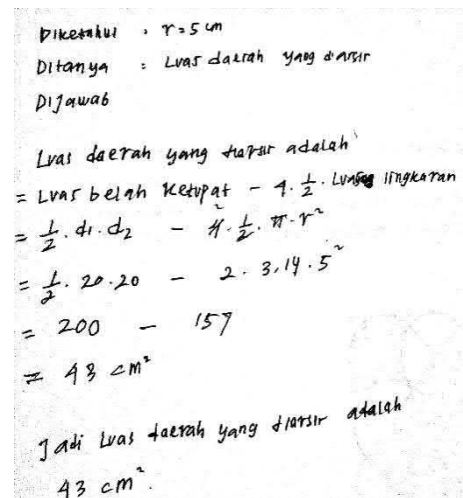 Diketahui : r = 5 cm
Ditanya : Luas daerah yang diarsir
Dijawab
Luas daerah yang diarsir adalah
= Luas belah ketupat - 4 . 1/2 . Luas lingkaran
= 1/2 . d1 . d2 - 4 . 1/2 . π . r²
= 1/2 . 20 . 20 - 2 . 3,14 . 5²
= 200 - 157
= 43 cm²
Jadi luas daerah yang diarsir adalah
43 cm².